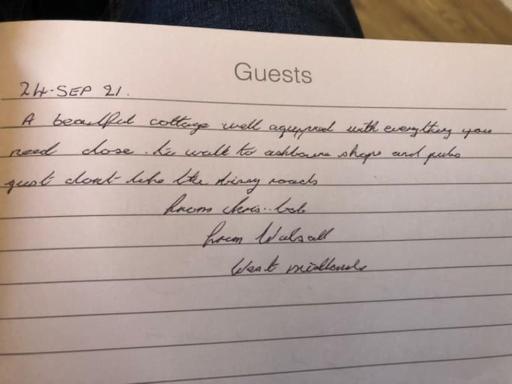 Guests
24·SEP 21.
A beautiful cottage well equipped with everything you
need close to walk to ashbourne shops and pubs
just dont like the windy roads
from chris..bob
from Walsall
West midlands